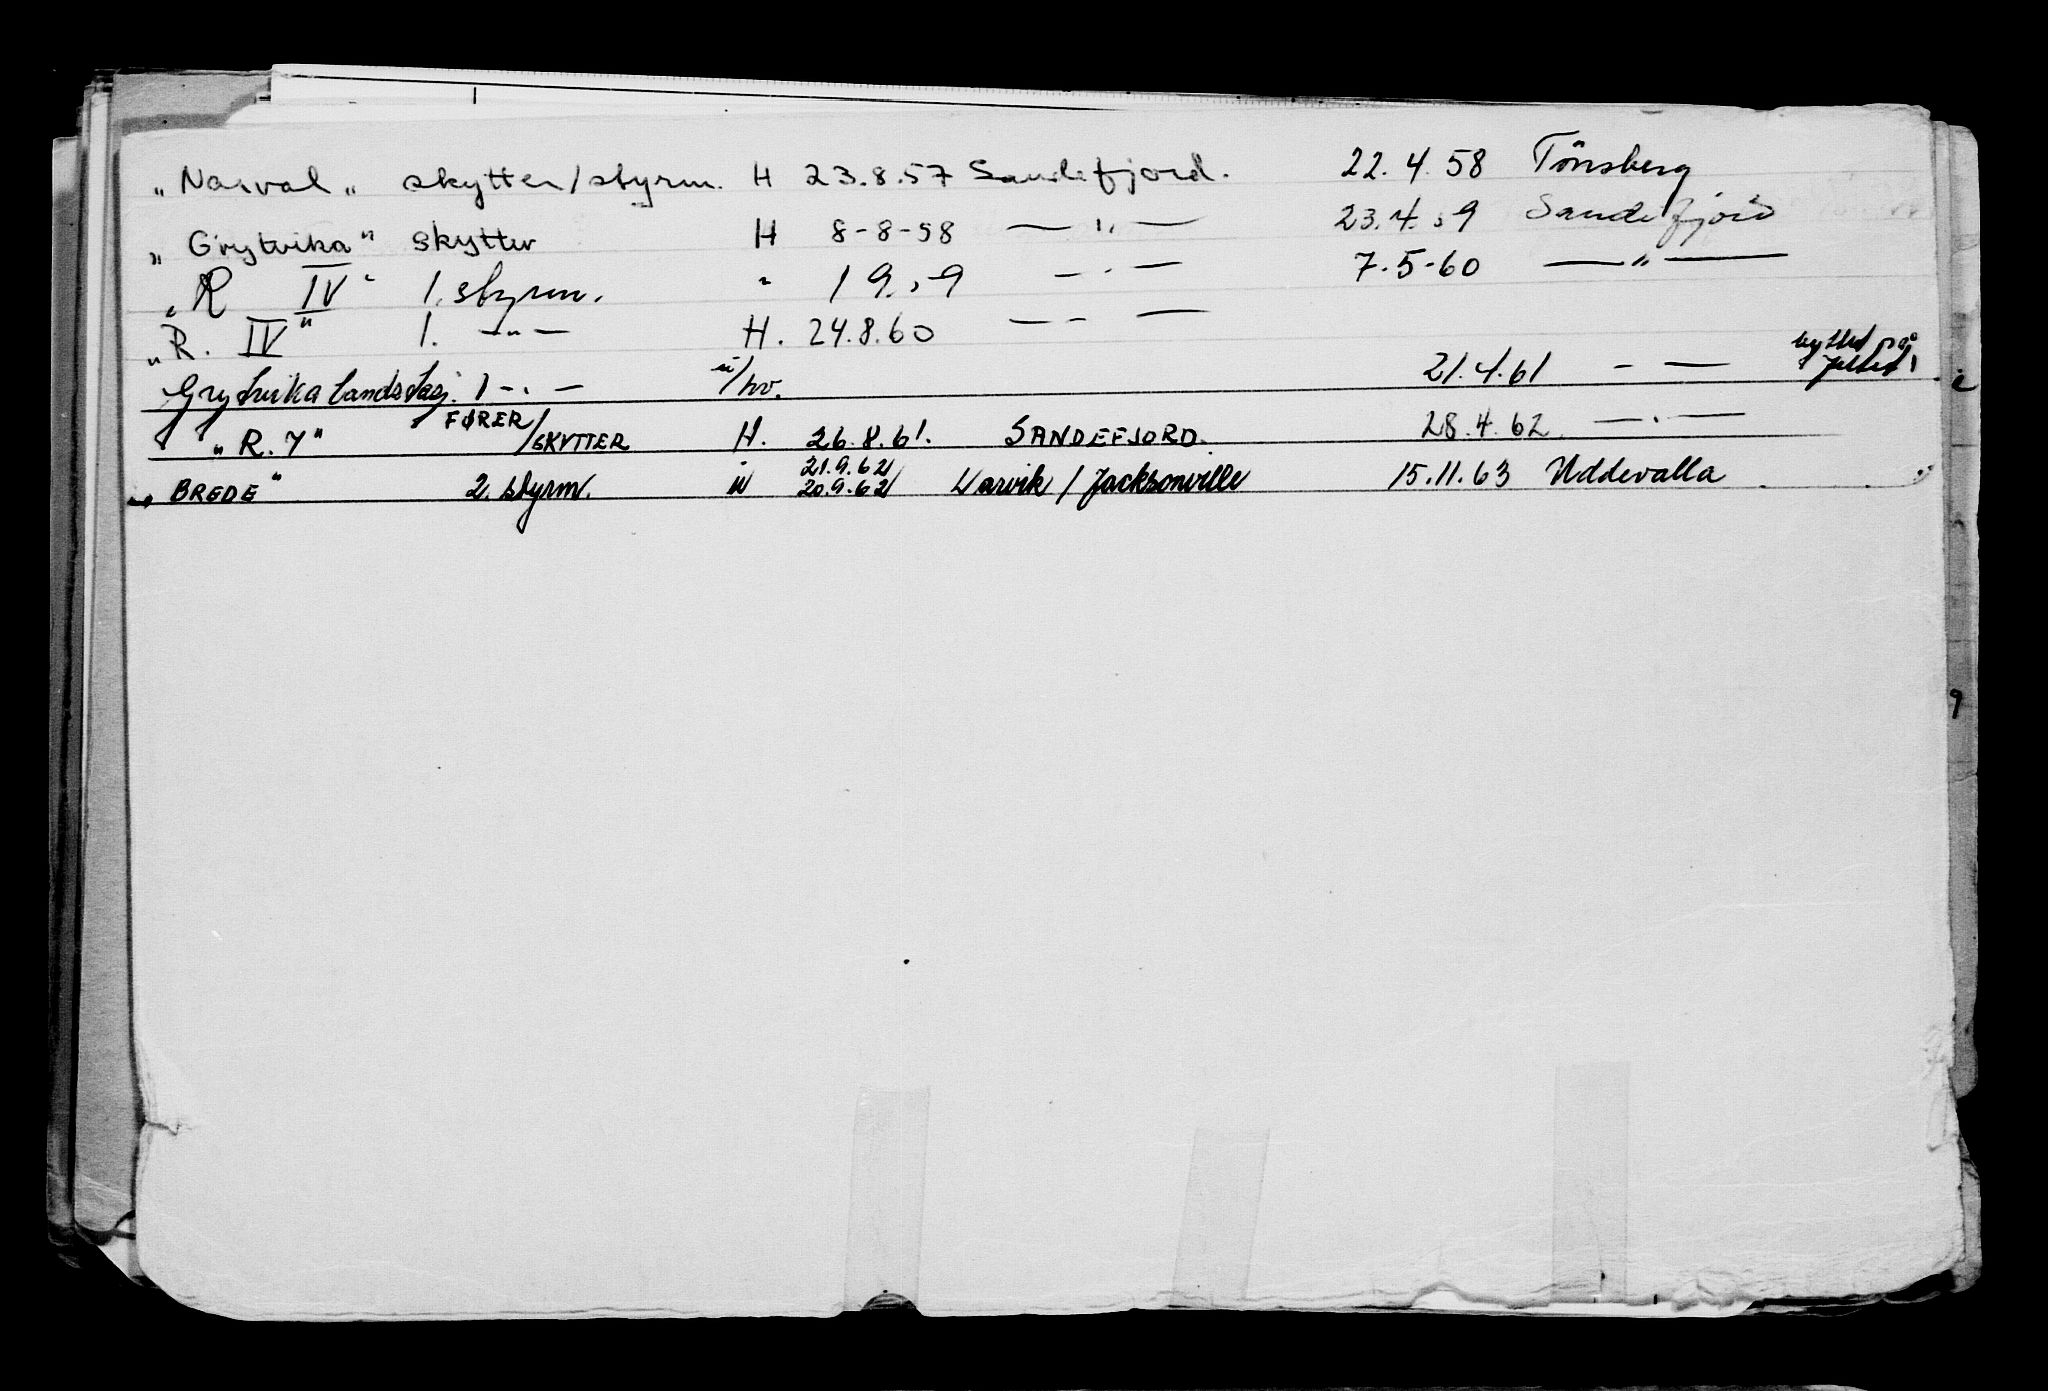 „ Narval „ skytter/styrm. H 23.8.57 Sandefjord. 22.4.58 Tönsberg
„ Grytvika " skytter H 8-8-58 — „ — 23.4.59 Sandefjord
„ R IV " 1. styrm. " 1 9. 59 — " — 7-5-60 — " —
„ R. IV " 1. — " — H. 24.8.60 — " —
Grytvika landstasj. 1 — " — u/hv. 21.4.61 — — byttet på feltet
„ R. 7 " FØRER/SKYTTER H. 26.8.61. SANDEFJORD. 28.4.62 — " —
„ BREDE " 2. styrm. U 21.9.62 20.9.62 Larvik / Jacksonville 15.11.63 Uddevalla